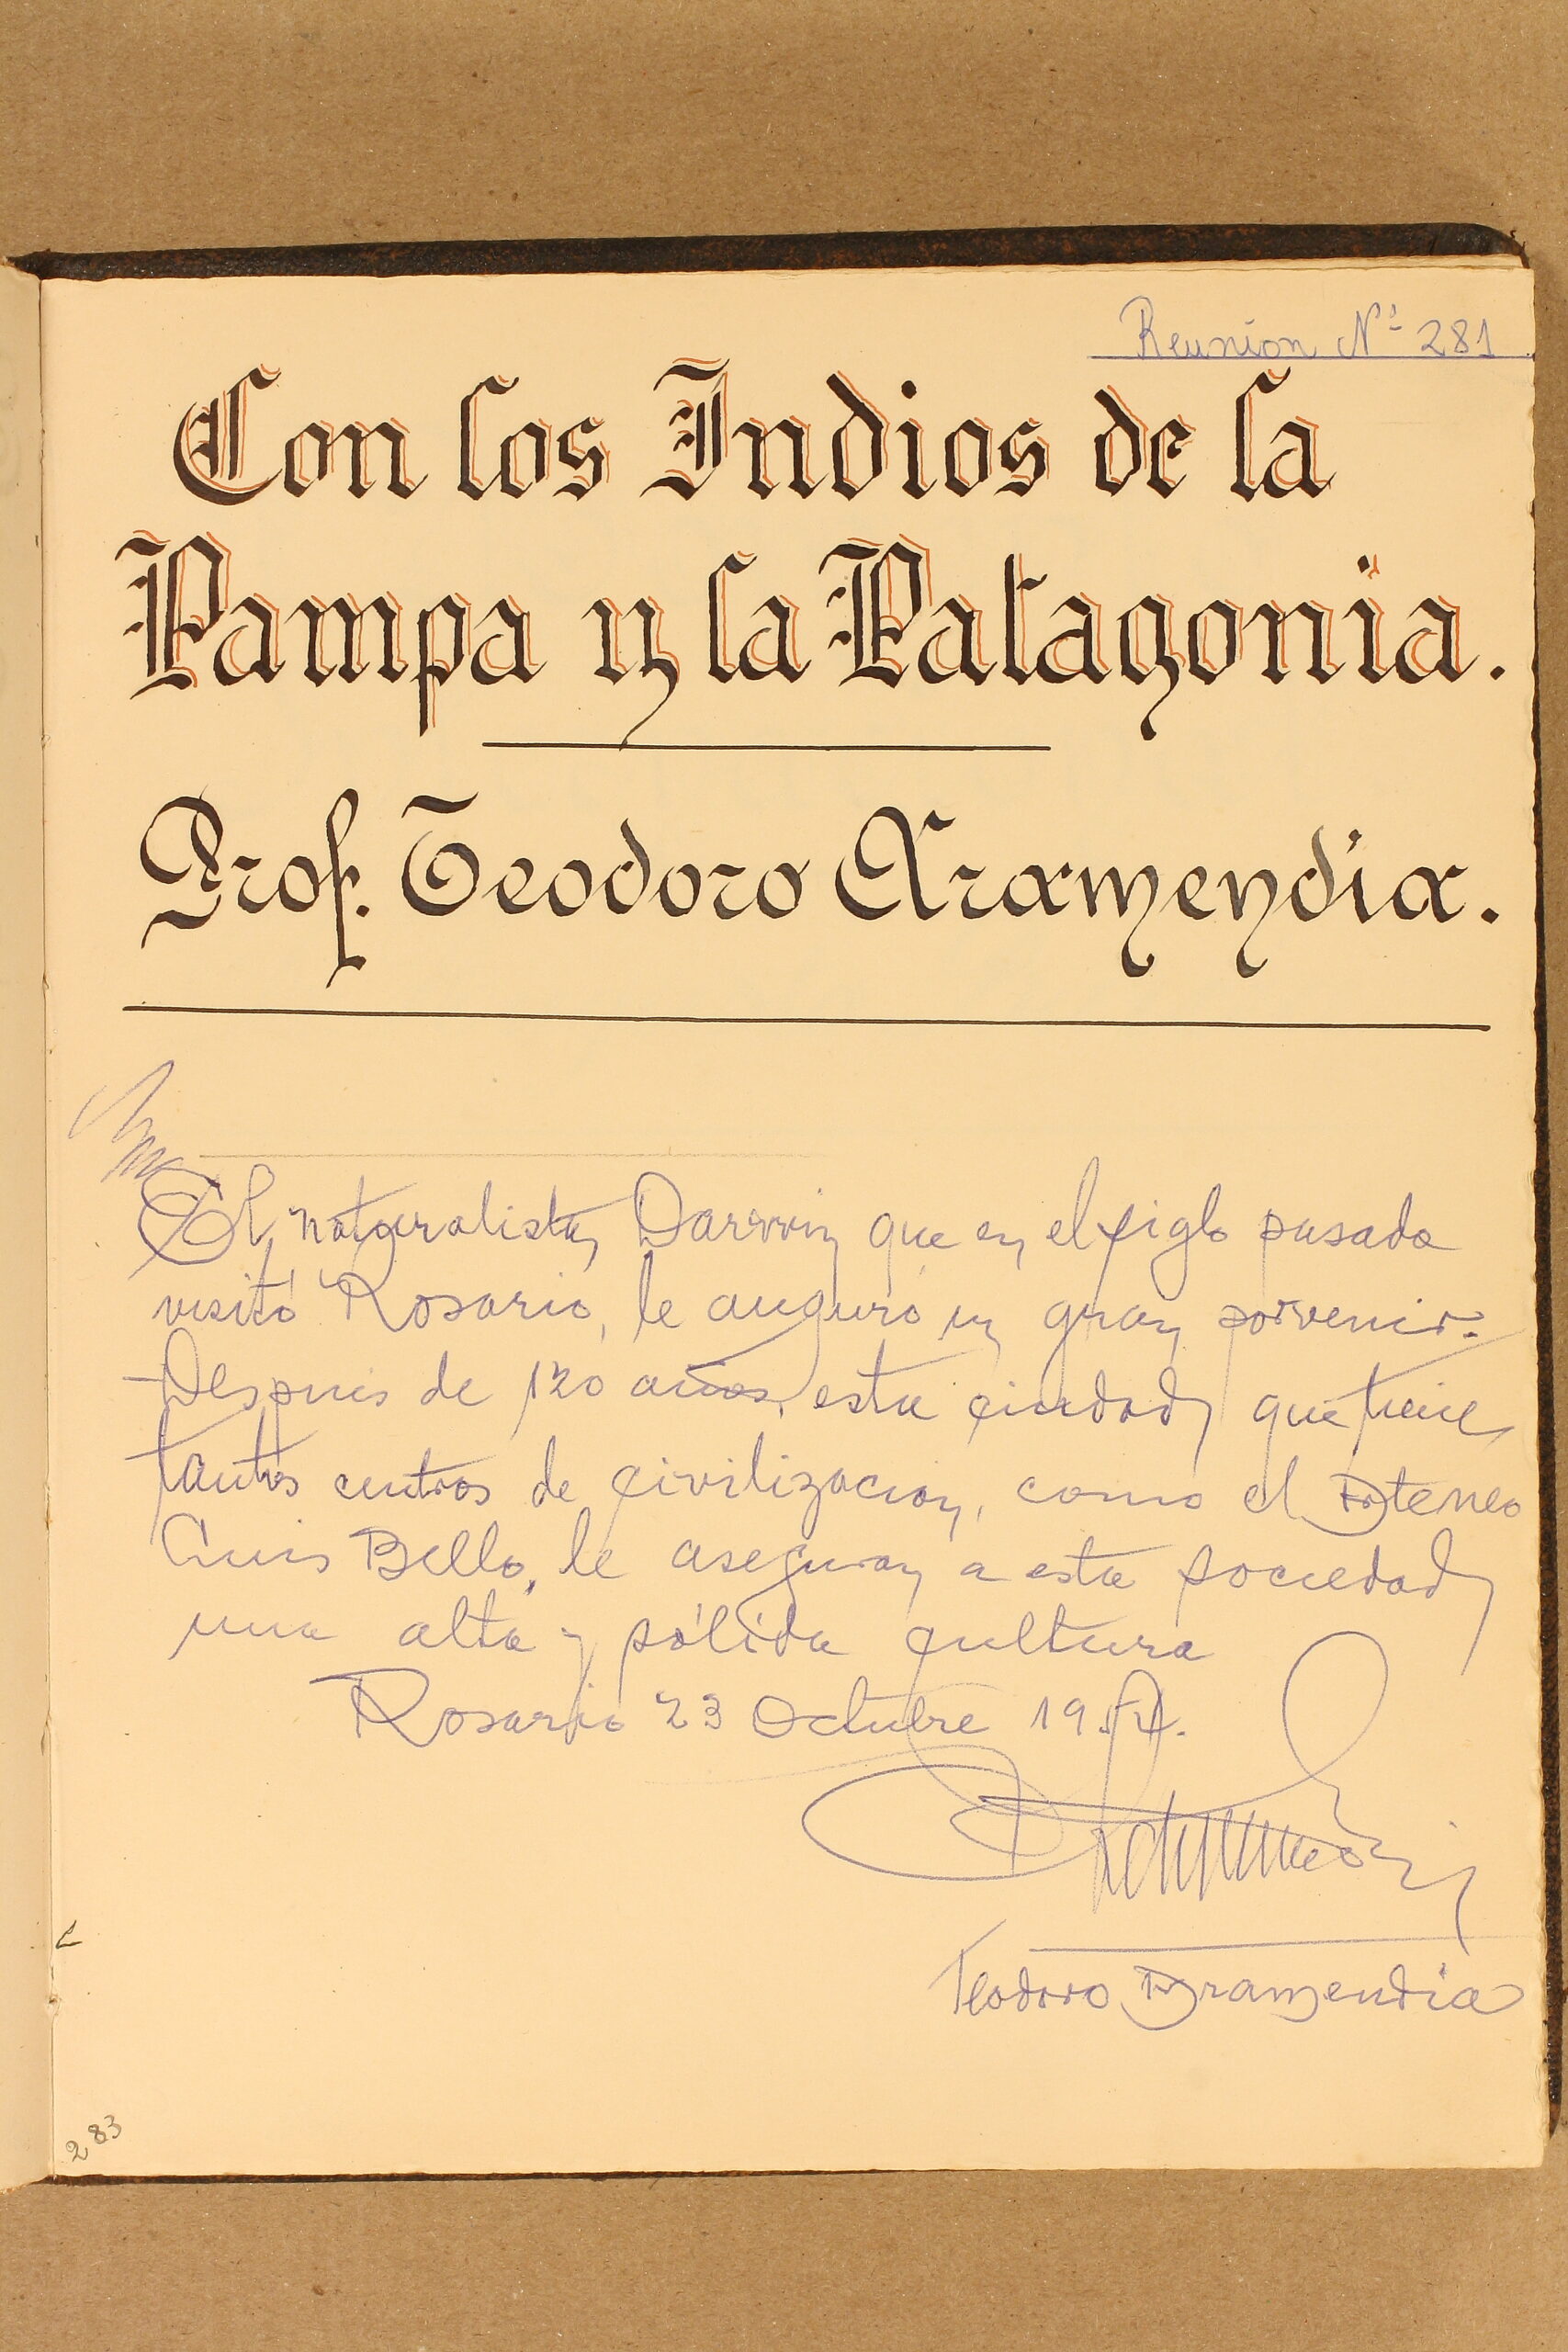 Reunion Nº 281
Con los Indios de la
Pampa y la Patagonia.
Prof. Teodoro Aramendia.
El naturalista Darwin que en el siglo pasado
visitó Rosario, le auguró un gran porvenir.
Despues de 120 años, esta ciudad que tiene
tantos centros de civilizacion, como el Ateneo
Luis Bello, le aseguran a esta sociedad
una alta y sólida cultura
Rosario 23 Octubre
Teodoro Aramendia
283